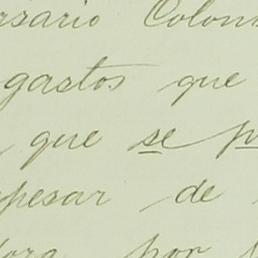 rsario Colon
gastos que
que se p
pesar de
dora por